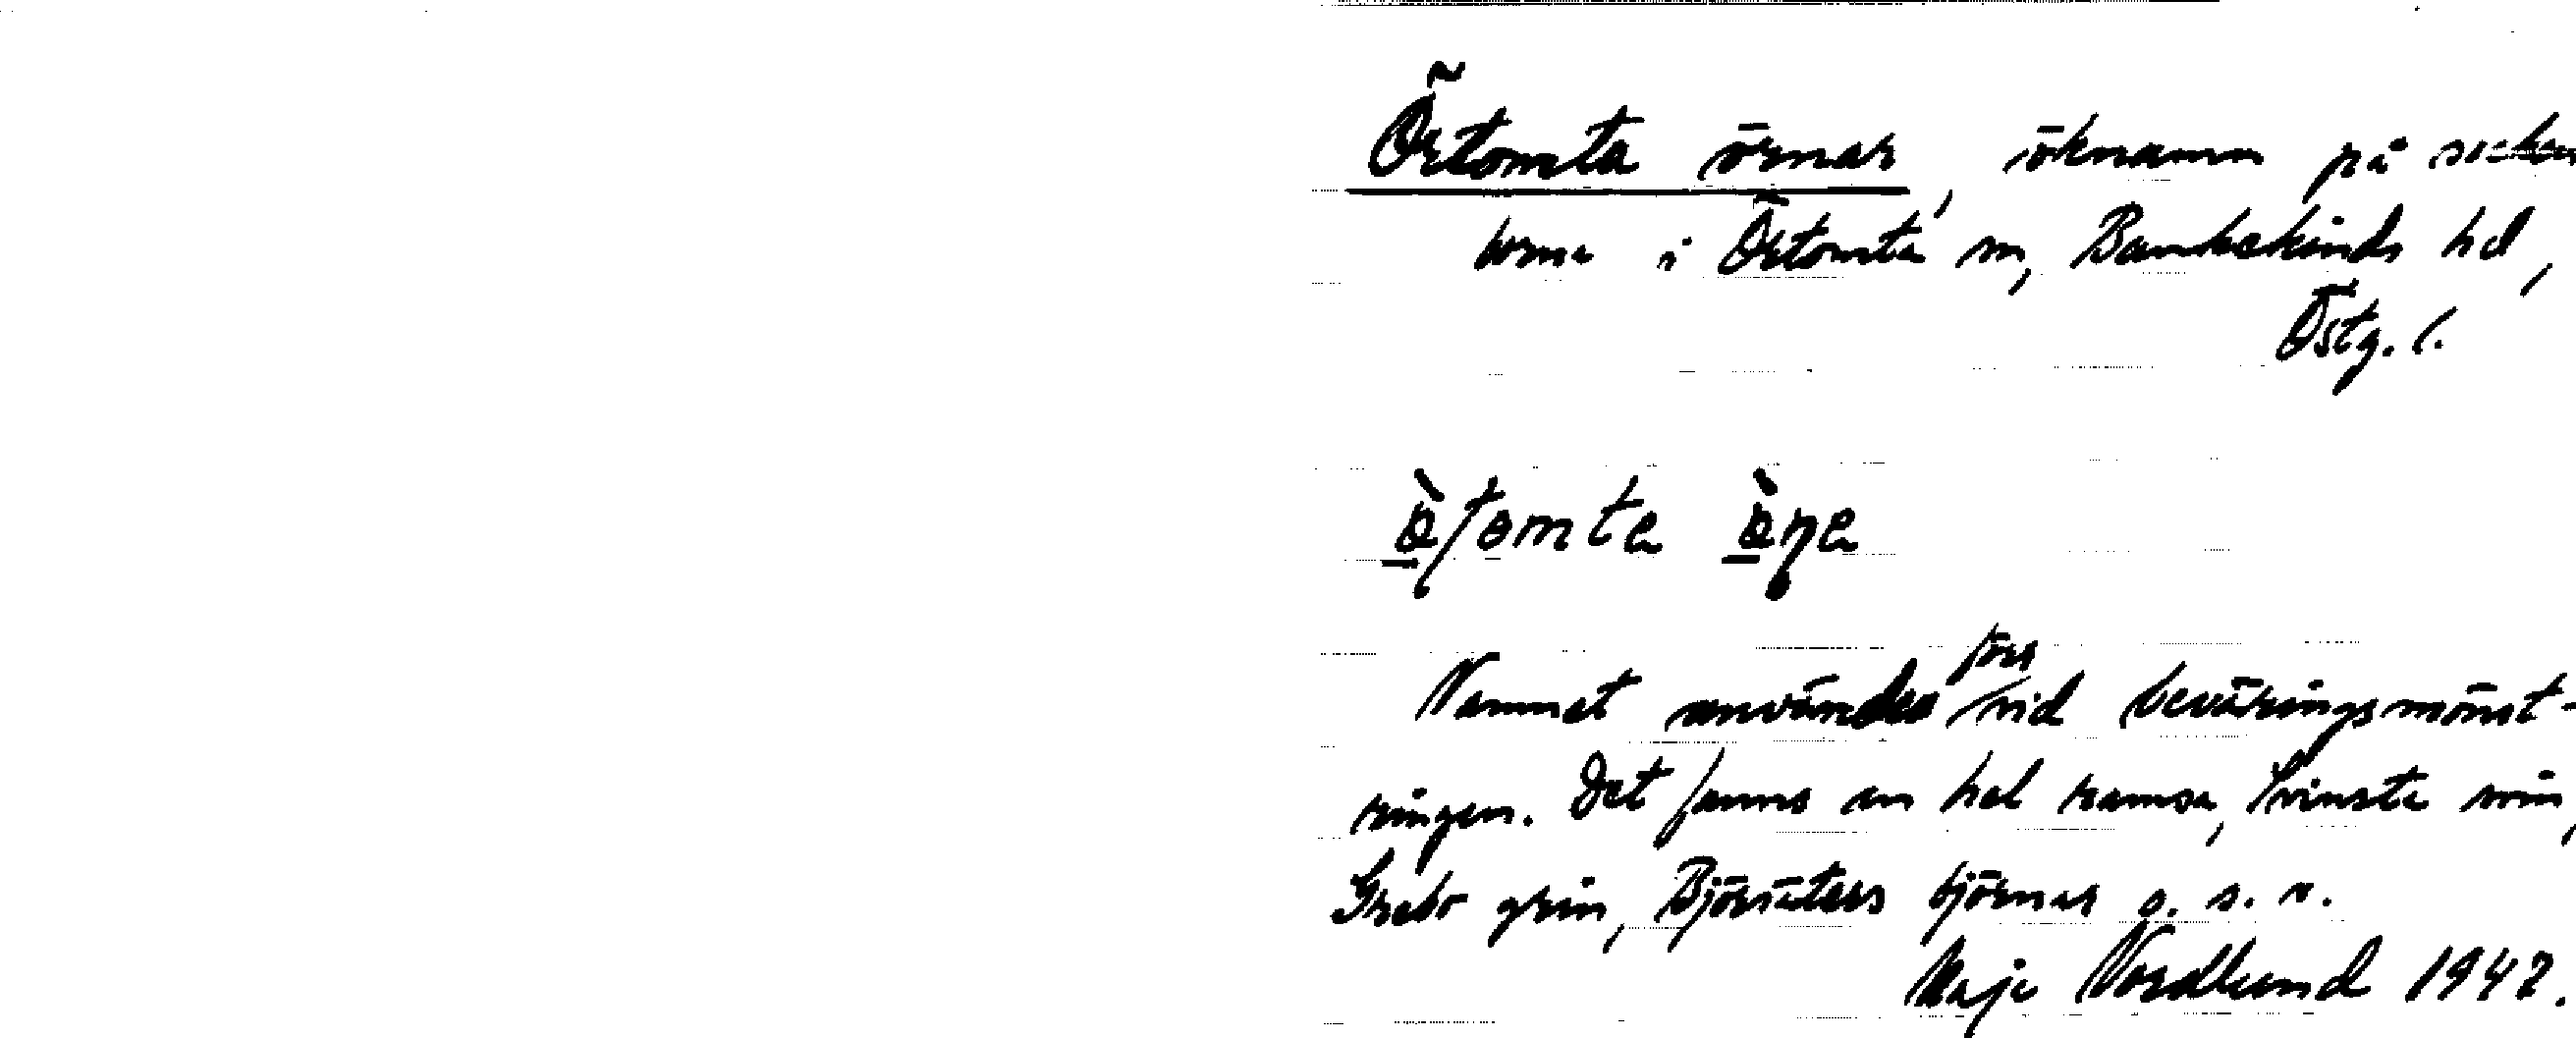 Örtomta örnar, öknamn på socken
borna i Örtomta sn, Bankekinds hd,
Östg. l.
Namnet användes förr vid beväringsmönst-
ringen. Det fanns en hel ramsa, Svinsta svin,
Grebo grin, Björsäters björnar o. s. v.
Maja Nordlund 1942.